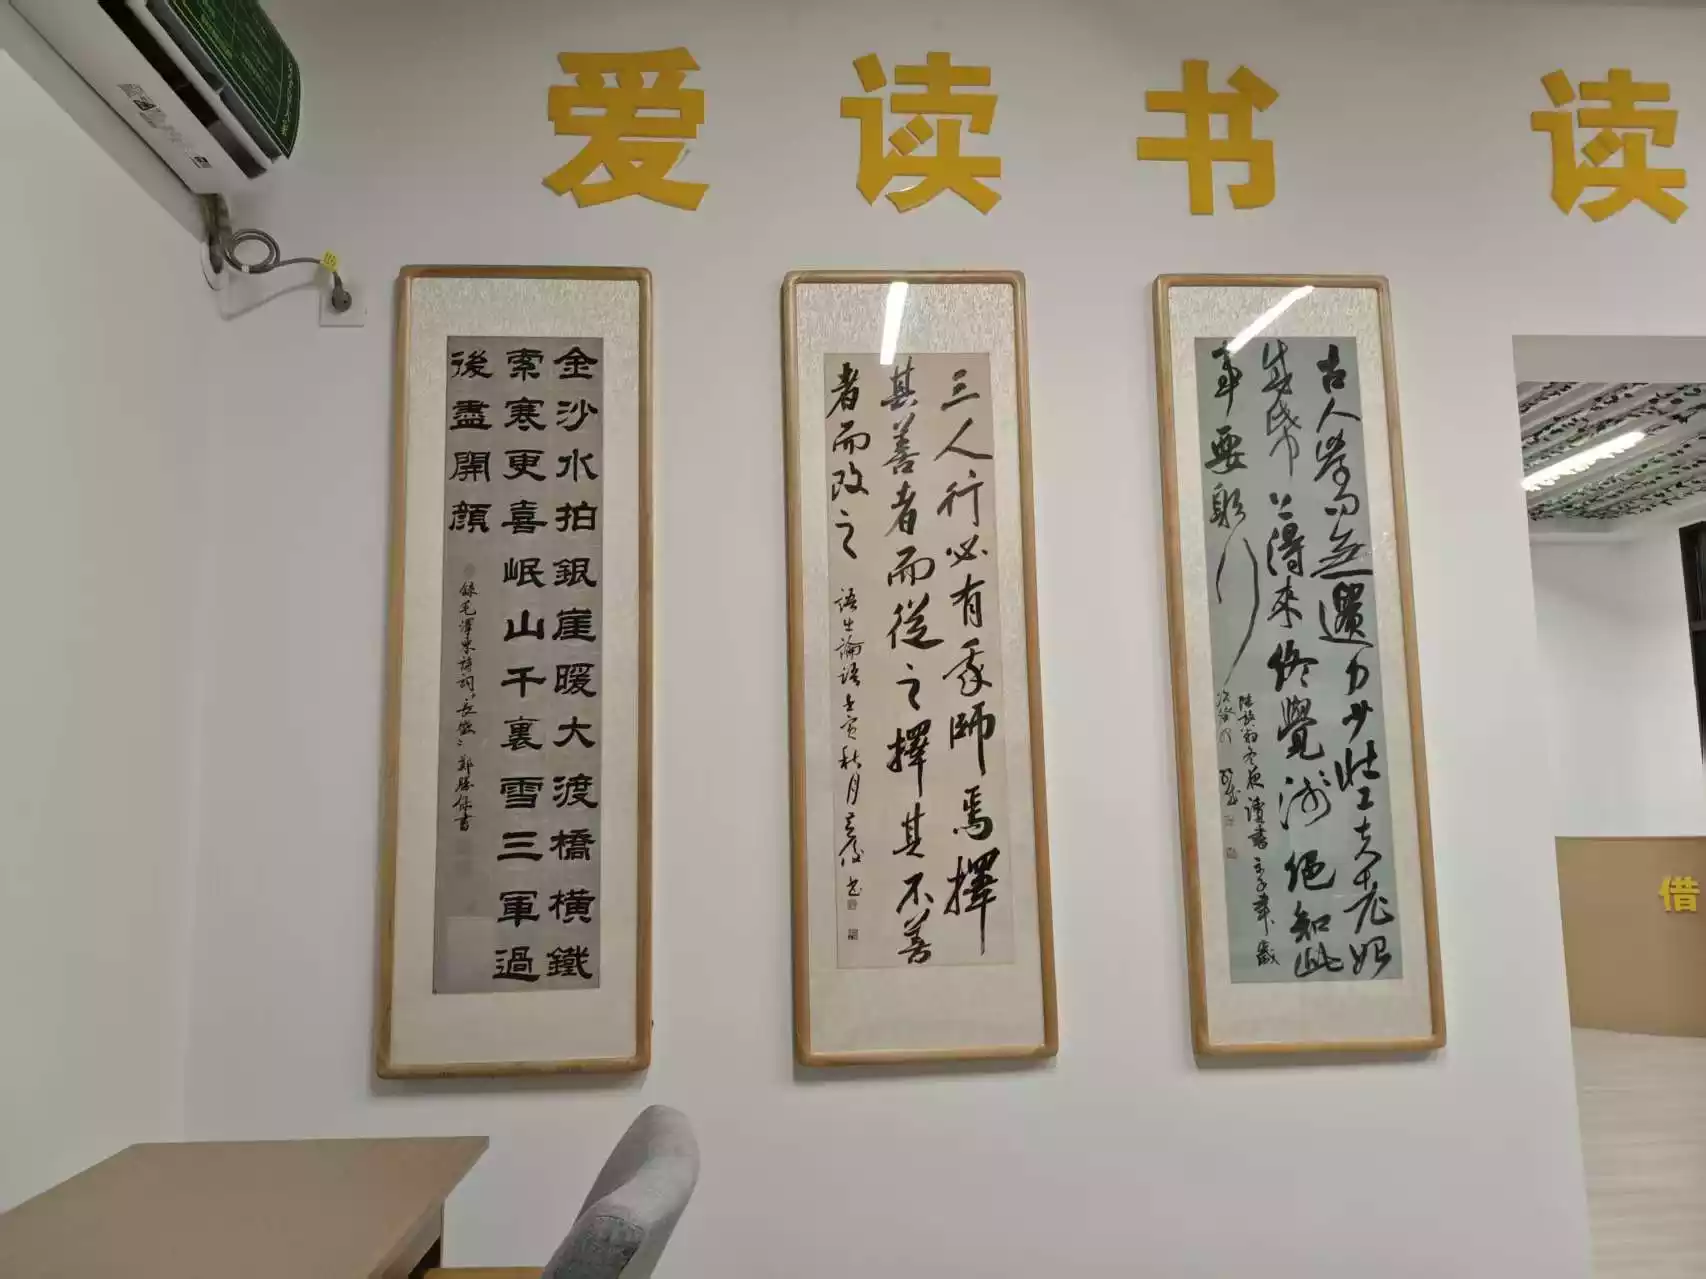 爱读书 读
金沙水拍銀崖暖大渡橋橫鐵
索寒更喜岷山千裏雪三軍過
後盡開顏
錄毛澤東詩詞長征鄭勝保書
三人行必有我師焉擇
其善者而從之擇其不善
者而改之
語出論語壬寅秋月
古人學問無遺力少壯工夫老始
成帋上得来終覺淺绝知此
事要躬行
借